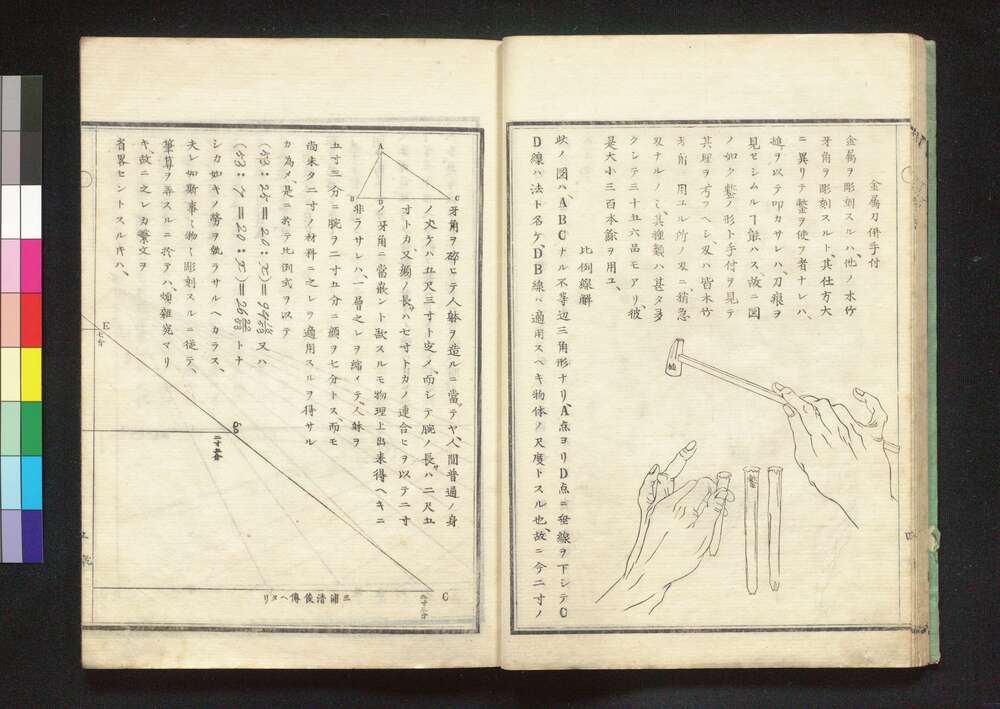 金属刀併手付
金属ヲ彫刻スルハ、他ノ木竹
牙角ヲ彫刻スルト、其仕方大
ニ異リテ鏨ヲ使フ者ナレハ、
槌ヲ以テ叩カサレハ、刀痕ヲ
見セシムルヿ能ハス、故ニ図
ノ如ク鏨ノ形ト手付ヲ見テ
其理ヲ考フヘシ、刄ハ皆木竹
牙角ニ用ユル所ノ刄ニ、稍急
刄ナルノミ、其種類ハ甚タ多
クシテ三十五六品モアリ、彼
是大小三百本餘ヲ用ユ、
比例線解
此ノ図ハABCナル不等辺三角形ナリ、A点ヨリD点ニ垂線ヲ下シテC
D線ハ法ト名ケ、DB線ハ適用スヘキ物体ノ尺度トスル也、故ニ今二寸ノ
槌
鏨
四
A
B
D
C
牙角ヲ碎ヒテ人躰ヲ造ルニ當テヤ、人間普通ノ身
ノ丈ケハ五尺三寸ト定メ、而シテ腕ノ長ハ二尺五
寸トカ、又顔ノ長ハ七寸トカノ連合ヒヲ以テ二寸
ノ牙角ニ當嵌ント欲スルモ物理上出来得ヘキニ
非ラサレハ、一層之レヲ縮メテ、人躰ヲ
五寸三分ニ腕ヲ二寸五分ニ顔ヲ七分トス、而モ
尚未タ二寸ノ材料ニ之レヲ適用スルヲ得サル
カ為メ、是ニ於テ比例式ヲ以テ
又ハ
トナ
シカ如キノ勞ヲ執ラサルヘカラス、
夫レ如斯事ミ物ミ彫刻スルニ従テ、
筆算ヲ弄スルニ於テハ、煩雑究マリ
キ、故ニ之レカ繁文ヲ
省畧セントスルキハ、
E
七分
二寸五分
C
三浦清俊傳ヘタリ
五